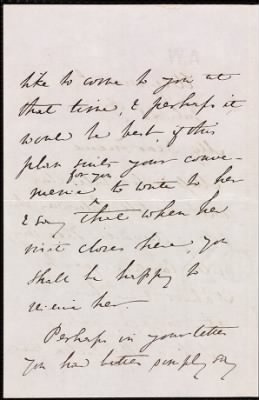 like to come to you at
that time, & perhaps it
would be best, if this
plan suits your conve-
for you
nience to write to her
& say that when her
visit closes here, you
shall be happy to
receive her.
Perhaps in your letter
you had better simply say